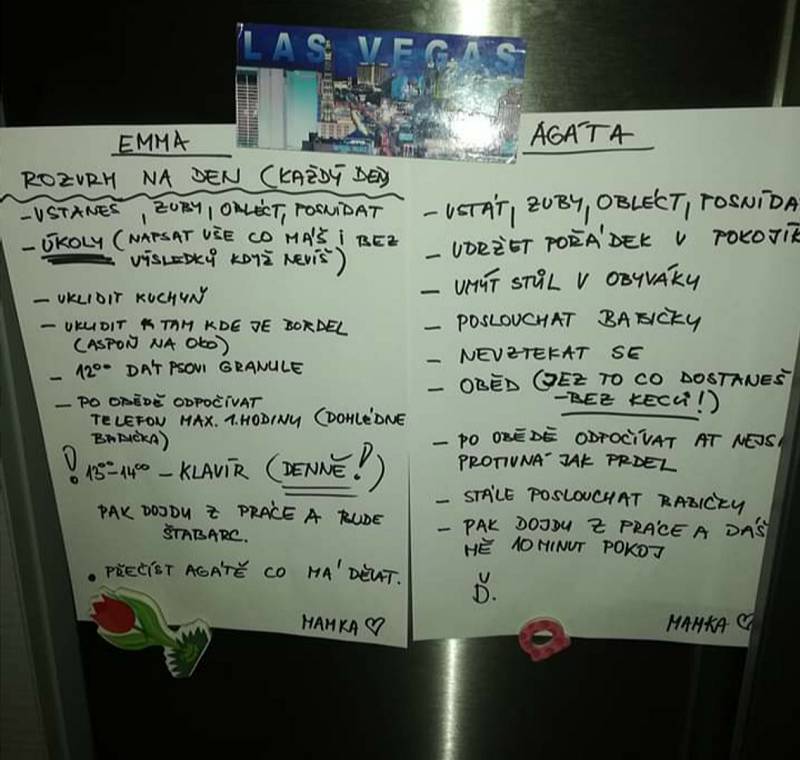 LAS VEGAS
EMMA
ROZVRH NA DEN (KAŽDÝ DEN)
- VSTANEŠ, ZUBY, OBLÉCT, POSNÍDAT
- ÚKOLY (NAPSAT VŠE CO MÁŠ I BEZ
VÝSLEDKŮ KDYŽ NEVÍŠ)
- UKLIDIT KUCHYŇ
- UKLIDIT TAM KDE JE BORDEL
(ASPOŇ NA OKO)
- 12⁰⁰ DÁT PSOVI GRANULE
- PO OBĚDĚ ODPOČÍVAT
TELEFON MAX. 1. HODINU (DOHLÉDNE
BABIČKA)
! 13⁰⁰-14⁰⁰ - KLAVÍR (DENNĚ!)
PAK DOJDU Z PRÁCE A BUDE
ŠTABARC.
• PŘEČÍST AGÁTĚ CO MÁ DĚLAT.
MAMKA ♡
AGÁTA
- VSTÁT, ZUBY, OBLÉCT, POSNÍDA
- UDRŽET POŘÁDEK V POKOJÍK
- UMÝT STŮL V OBÝVÁKY
- POSLOUCHAT BABIČKY
- NEVZTEKAT SE
- OBĚD (JEZ TO CO DOSTANEŠ
- BEZ KECŮ!)
- PO OBĚDĚ ODPOČÍVAT AT NEJSI
PROTIVNÁ JAK PRDEL
- STÁLE POSLOUCHAT BABIČKY
- PAK DOJDU Z PRÁCE A DÁŠ
MĚ 10 MINUT POKOJ
Ď.
MAMKA ♡